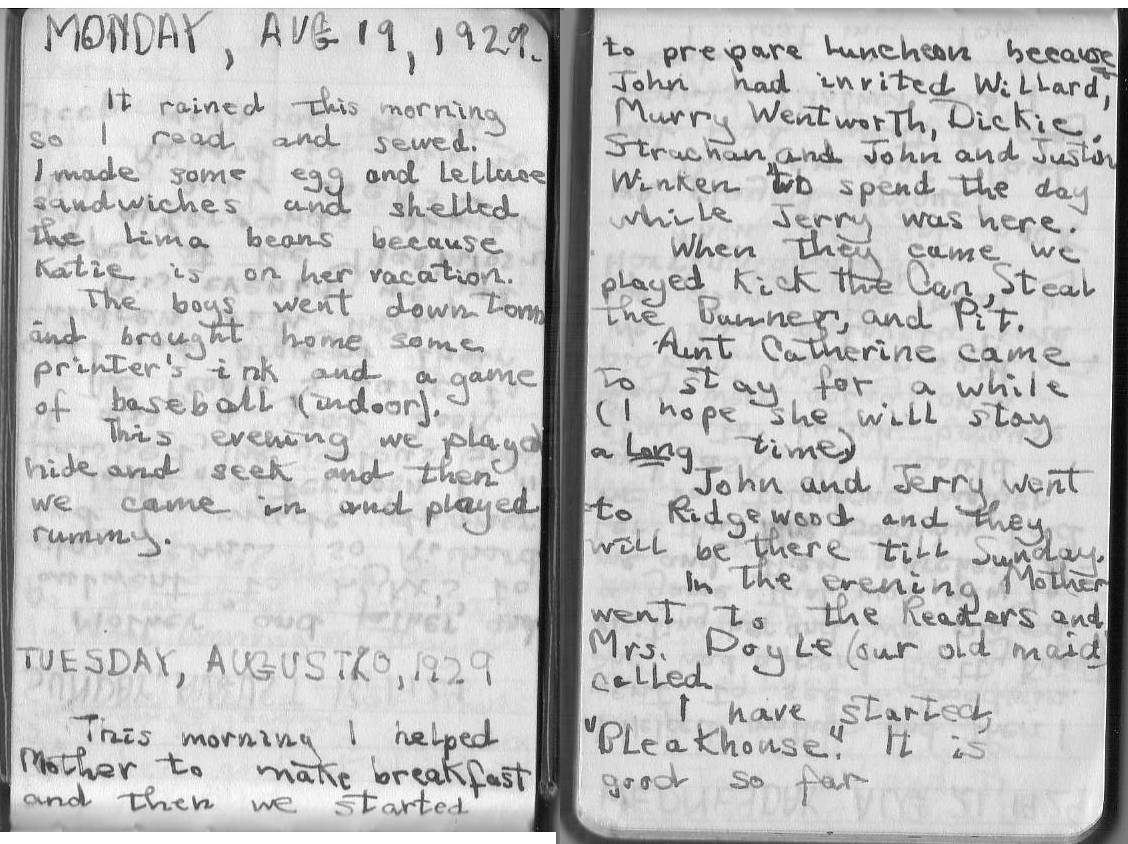 MONDAY, AUG 19, 1929.
It rained this morning
so I read and sewed.
I made some egg and Lettuce
sandwiches and shelled
the Lima beans because
Katie is on her vacation.
The boys went down town
and brought home some
printer's ink and a game
of baseball (indoor).
This evening we played
hide and seek and then
we came in and played
rummy.
TUESDAY, AUGUST 20, 1929
This morning I helped
Mother to make breakfast
and then we started
to prepare luncheon because
John had invited Willard,
Murry Wentworth, Dickie
Strachan, and John and Justin
Winken to spend the day
while Jerry was here.
When they came we
played Kick the Can, Steal
the Bunner, and Pit.
Aunt Catherine came
to stay for a while
(I hope she will stay
a Long time)
John and Jerry went
to Ridgewood and they
will be there till Sunday.
In the evening Mother
went to the Readers and
Mrs. Doyle (our old maid)
called.
I have started,
"BLeakhouse." It is
good so far